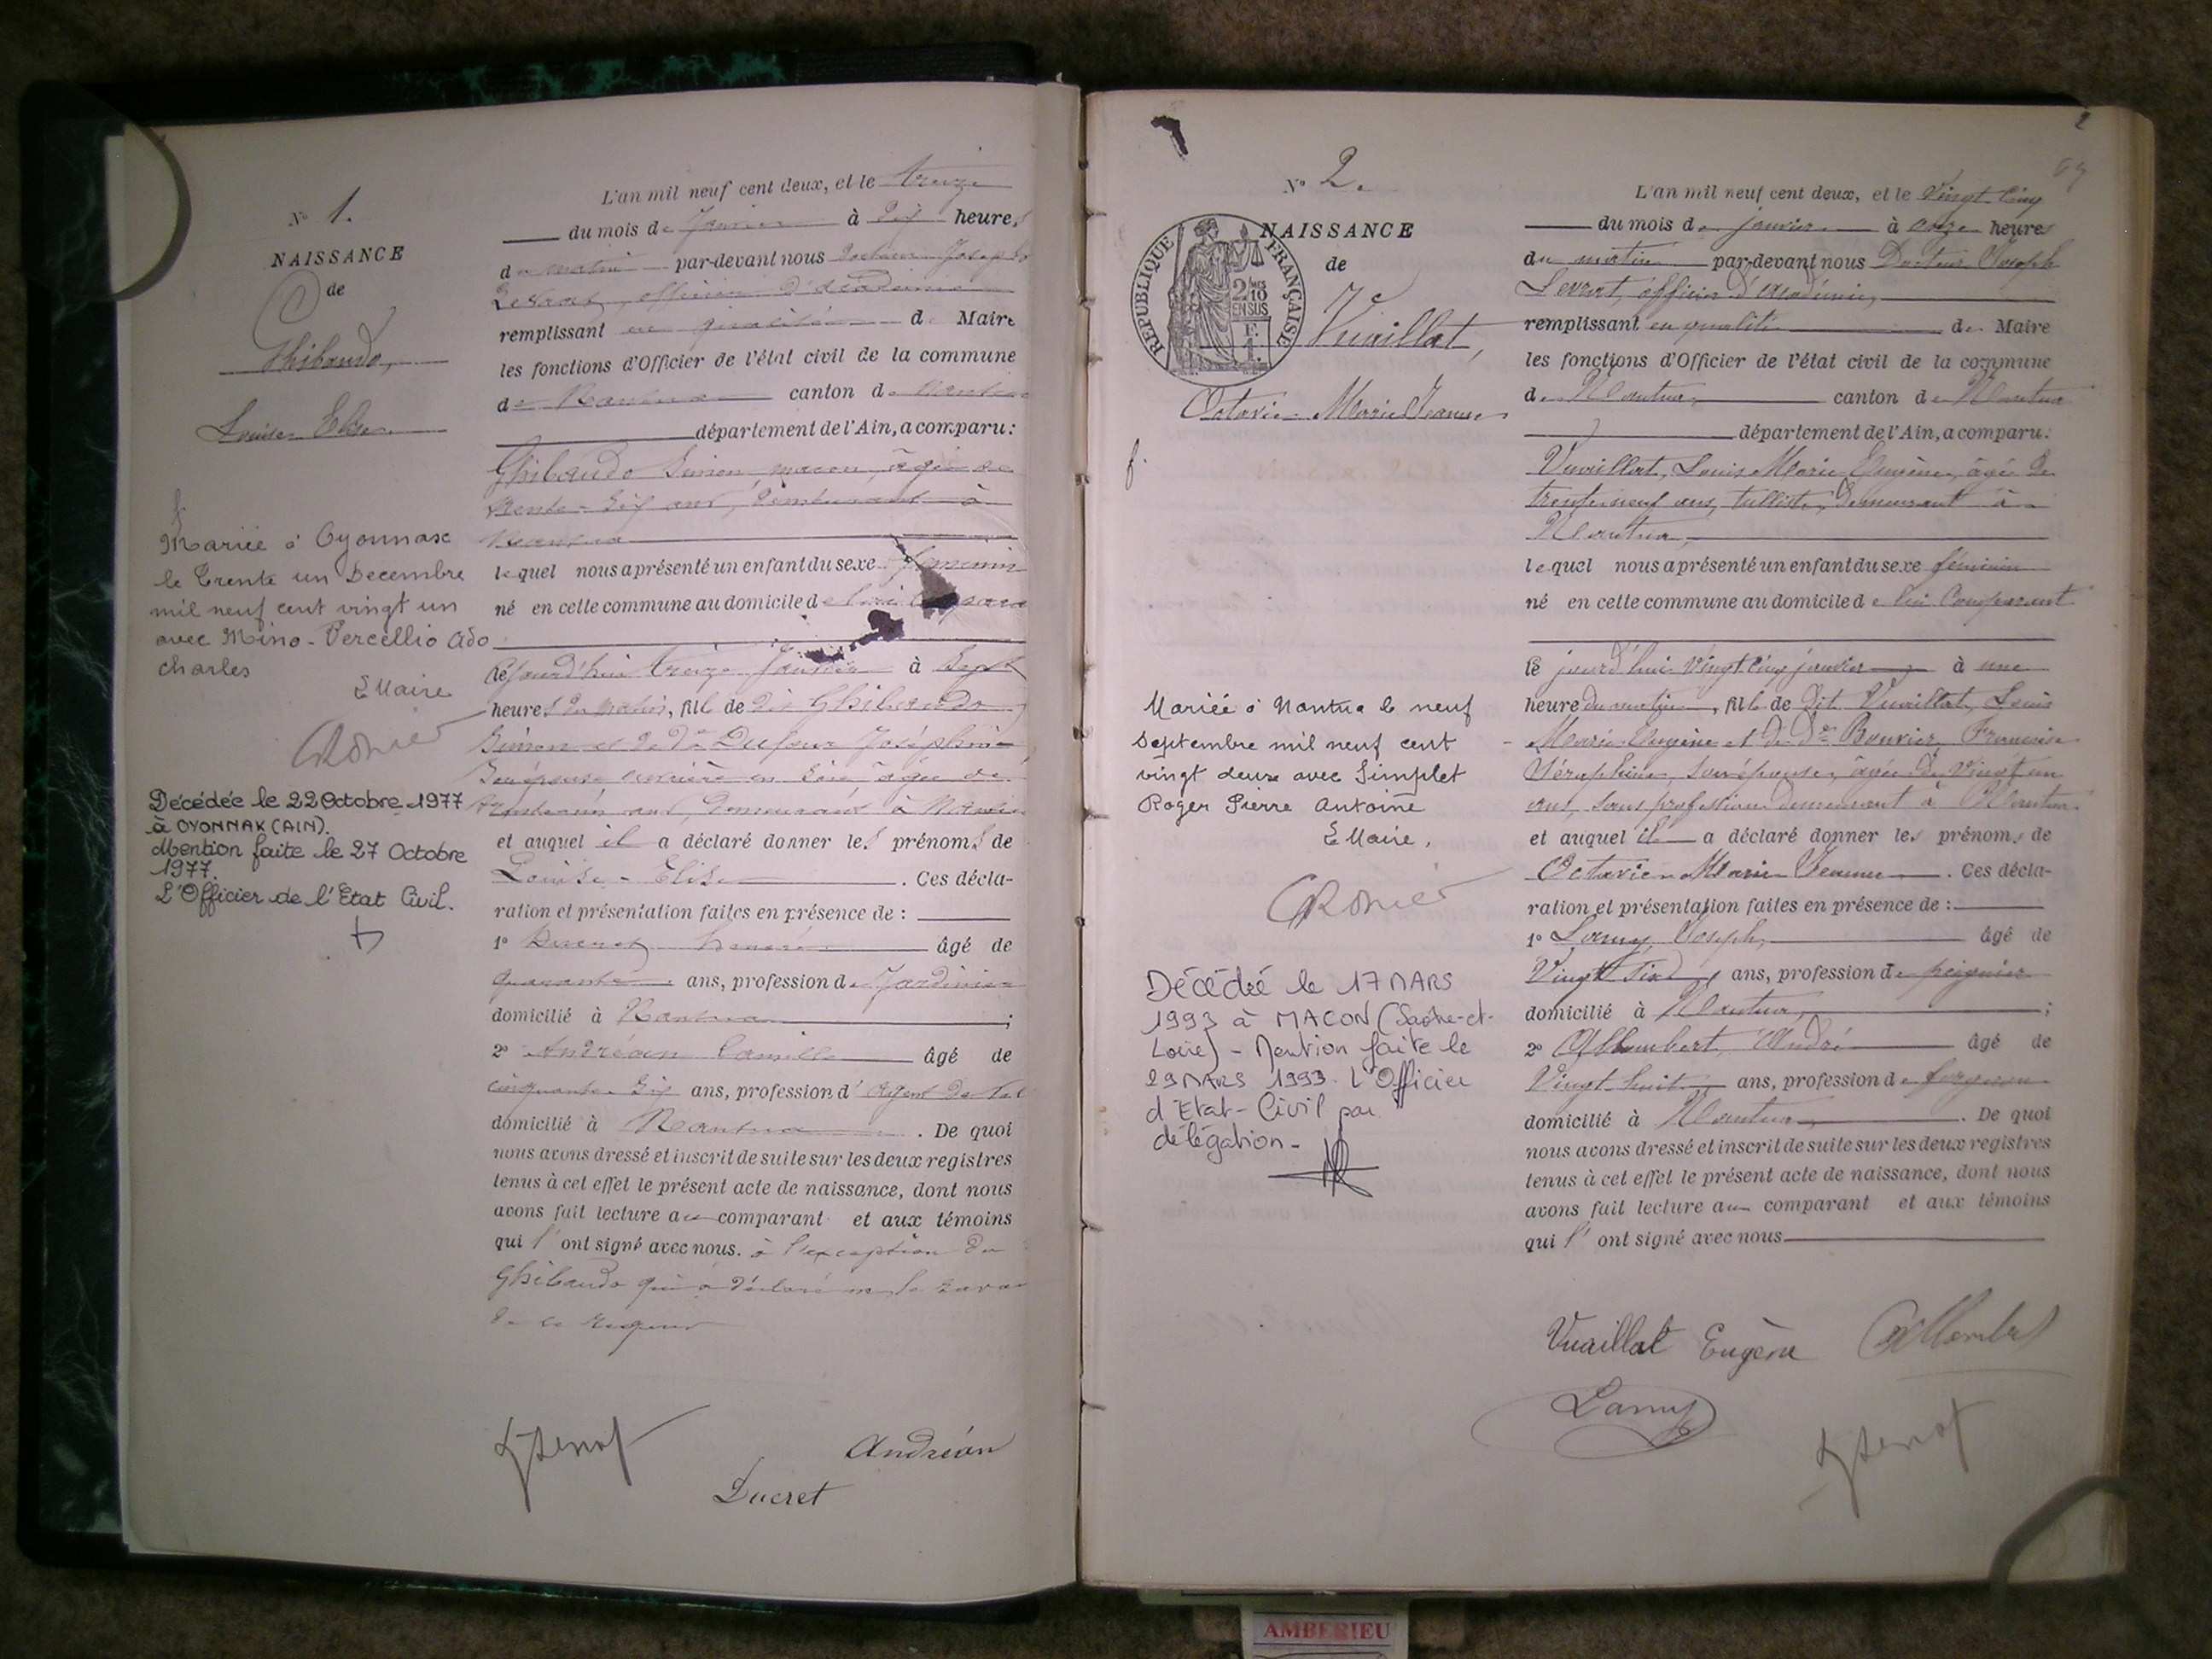 N° 1.
NAISSANCE
de
Ghibaudo,
Louise Elise
f
Mariée à Oyonnax
le Trente un Decembre
mil neuf cent vingt un
avec Mino-Vercellio Ado
charles
Le Maire
Décédée le 22 Octobre 1977
à OYONNAX (AIN).
Mention faite le 27 Octobre
1977.
L'Officier de l'Etat Civil.
L'an mil neuf cent deux, et le treize
du mois de Janvier à dix heures
du matin par-devant nous Docteur Joseph
Levrat, officier d'académie
remplissant en qualité de Maire
les fonctions d'Officier de l'état civil de la commune
de Nantua canton de Nantua
département de l'Ain, a comparu :
Ghibaudo Simon, maçon, âgé de
trente-six ans, demeurant à
Nantua
lequel nous a présenté un enfant du sexe féminin
né en cette commune au domicile de lui comparant
ce jourd'hui treize Janvier à sept
heures du matin, fille de dit Ghibaudo
Simon et de De Dufour Joséphine
son épouse, ouvrière en soie, âgée de
ans, demeurant à Nantua
et auquel il a déclaré donner les prénoms de
Louise-Elise. Ces décla-
ration et présentation faites en présence de :
1° Ducret âgé de
quarante ans, profession de Jardinier
domicilié à Nantua ;
2° Andréan Camille âgé de
cinquante-six ans, profession d'agent de
domicilié à Nantua. De quoi
nous avons dressé et inscrit de suite sur les deux registres
tenus à cet effet le présent acte de naissance, dont nous
avons fait lecture au comparant et aux témoins
qui l'ont signé avec nous. à l'exception du
Ghibaudo qui a déclaré ne le savoir
de ce requis
Andréan
Ducret
2
N° 2.
NAISSANCE
de
REPUBLIQUE FRANÇAISE
2 MES
10
EN SUS
Vuaillat,
Octavie Marie Jeanne
f.
Mariée à Nantua le neuf
Septembre mil neuf cent
vingt deux avec Simplet
Roger Pierre Antoine
Le Maire,
Décédée le 17 MARS
1993 à MACON (Saône-et-
Loire) - Mention faite le
29 MARS 1993. L'Officier
d'Etat-Civil par
délégation -
L'an mil neuf cent deux, et le Vingt cinq
du mois de janvier à onze heures
du matin par-devant nous Docteur Joseph
Levrat, officier d'académie,
remplissant en qualité de Maire
les fonctions d'Officier de l'état civil de la commune
de Nantua, canton de Nantua
département de l'Ain, a comparu :
Vuaillat, Louis Marie Eugène, âgé de
trente-neuf ans, tulliste, demeurant à
Nantua,
lequel nous a présenté un enfant du sexe féminin
né en cette commune au domicile de lui Comparant
ce jourd'hui vingt cinq janvier à une
heure du matin, fille de dit Vuaillat, Louis
Marie Eugène et de De Bouvier, Françoise
Séraphine, son épouse, âgée de vingt un
ans, sans profession demeurant à Nantua.
et auquel il a déclaré donner les prénoms de
Octavie Marie Jeanne. Ces décla-
ration et présentation faites en présence de :
1° Lamy, Joseph, âgé de
Vingt six ans, profession de peignier
domicilié à Nantua, ;
2° Allombert, André âgé de
Vingt-huit ans, profession de forgeron
domicilié à Nantua. De quoi
nous avons dressé et inscrit de suite sur les deux registres
tenus à cet effet le présent acte de naissance, dont nous
avons fait lecture au comparant et aux témoins
qui l'ont signé avec nous
Vuaillat Eugène Allombert
Lamy
AMBERIEU